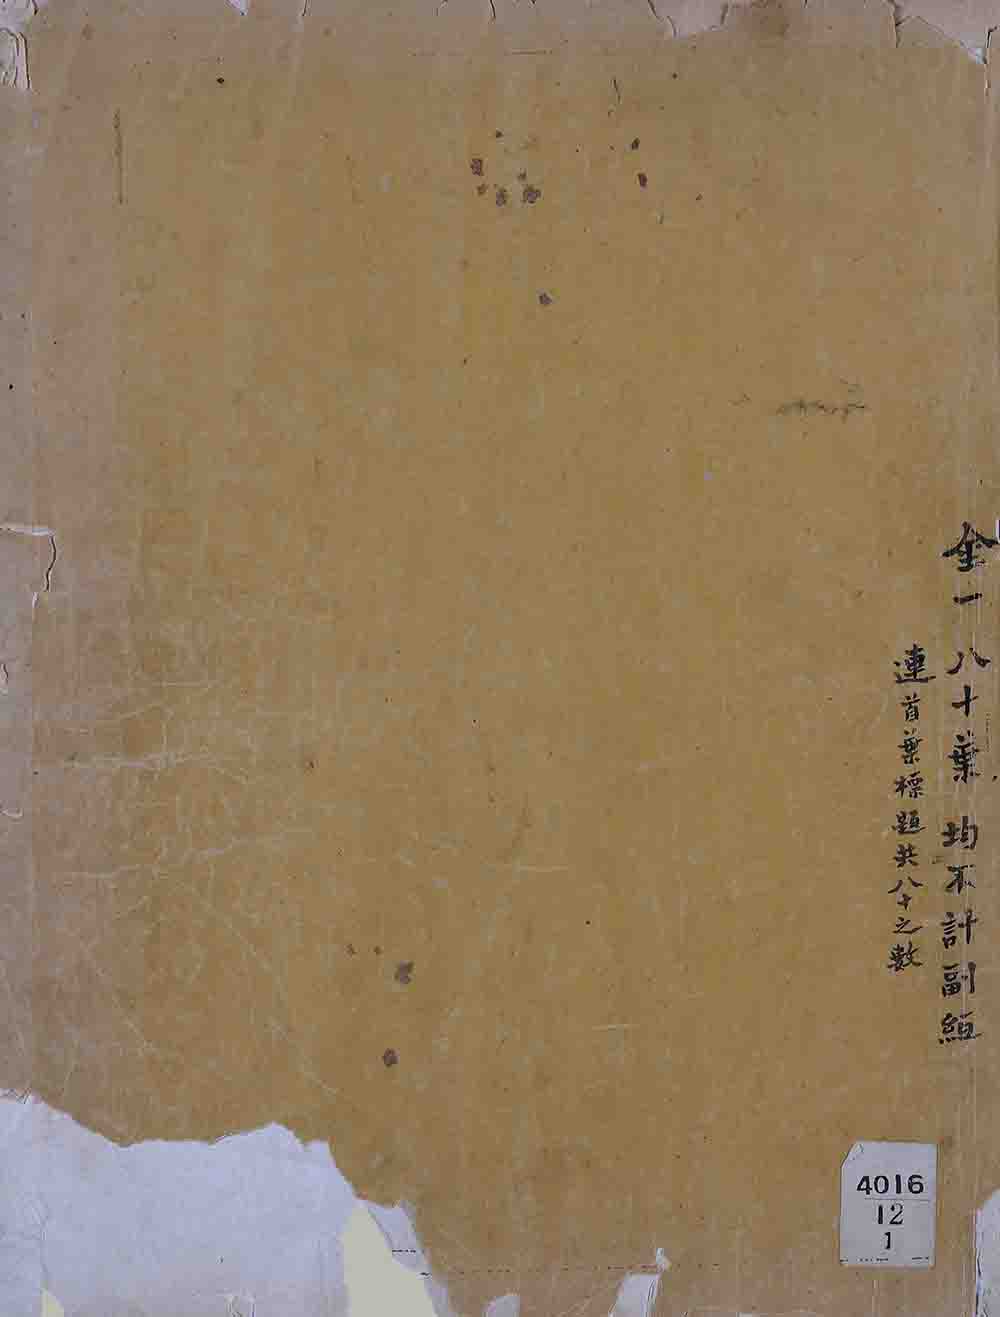 金一 八十葉 均不計副𥿄
連首葉標題共八十之數
4016
12
1